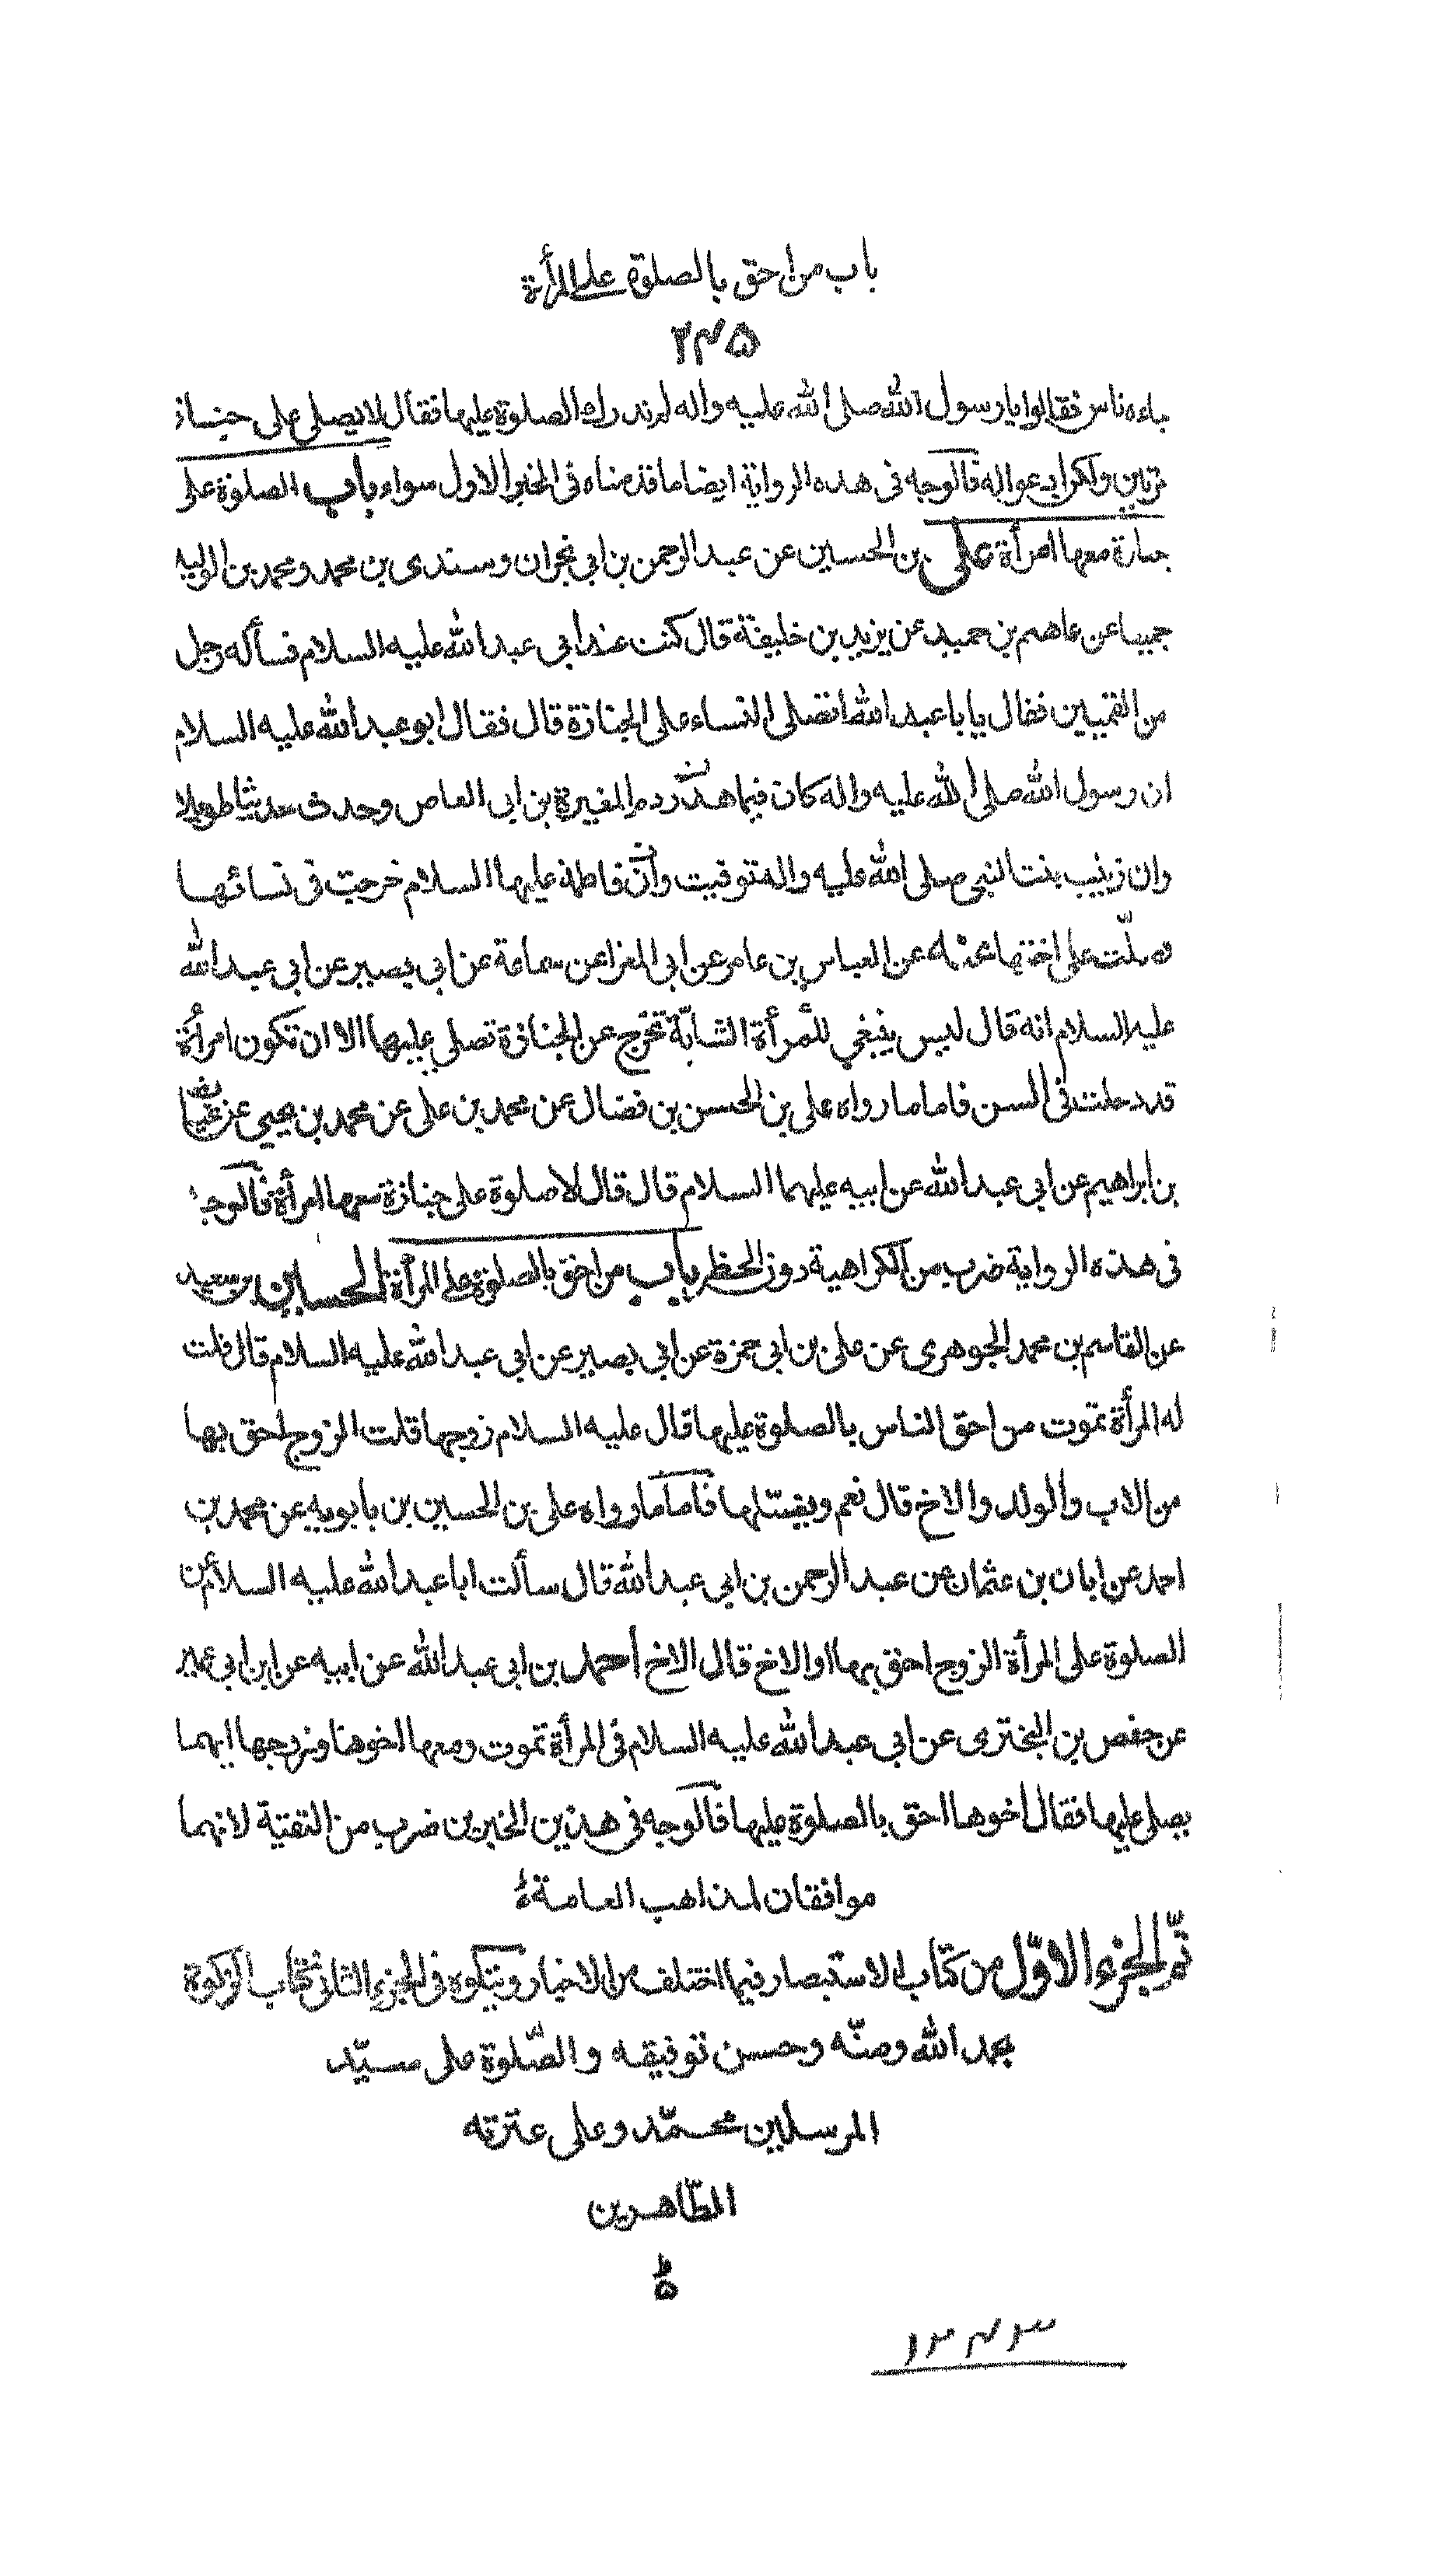 باب من احق بالصلوة على المرأة
۲۴۵
جاءه ناس فقالوا يا رسول الله صلى الله عليه واله لم ندرك الصلوة عليها فقال لا يصلى على جنازة
مرتين ولكن ادعوا له فالوجه فى هذه الرواية ايضا ما قدمناه فى الخبر الاول سواء باب الصلوة على
جنازة معها امرأة على بن الحسين عن عبد الرحمن بن ابى نجران وسندى بن محمد ومحمد بن الوليد
جميعا عن عاصم بن حميد عن يزيد بن خليفة قال كنت عند ابى عبد الله عليه السلام فسأله رجل
من القميين فقال يا با عبد الله اتصلى النساء على الجنازة قال فقال ابو عبد الله عليه السلام
ان رسول الله صلى الله عليه واله كان فيما هدر دم المغيرة بن ابى العاص وحدث حديثا طويلا
وان زينب بنت النبى صلى الله عليه واله توفيت وان فاطمة عليها السلام خرجت فى نسائها
فصلّت على اختها عنه عن العباس بن عامر عن ابى المغرا عن سماعة عن ابى بصير عن ابى عبد الله
عليه السلام انه قال ليس ينبغي للمرأة الشابّة تخرج عن الجنازة تصلي عليها الا ان تكون امرأة
قد دخلت فى السن فاما ما رواه على بن الحسن بن فضال عن محمد بن على عن محمد بن يحيى عن غياث
بن ابراهيم عن ابى عبد الله عن ابيه عليهما السلام قال قال لا صلوة على جنازة معها امرأة فالوجه
فى هذه الرواية ضرب من الكراهية دون الحظر باب من احق بالصلوة على المرأة الحسين بن سعيد
عن القاسم بن محمد الجوهرى عن على بن ابى حمزة عن ابى بصير عن ابى عبد الله عليه السلام قال قلت
له المرأة تموت من احق الناس بالصلوة عليها قال عليه السلام زوجها قلت الزوج احق بها
من الاب والولد والاخ قال نعم ويغسّلها فاما ما رواه على بن الحسين بن بابويه عن محمد بن
احمد عن ابان بن عثمان عن عبد الرحمن بن ابى عبد الله قال سألت ابا عبد الله عليه السلام عن
الصلوة على المرأة الزوج احق بها او الاخ قال الاخ احمد بن ابى عبد الله عن ابيه عن ابن ابى عمير
عن حفص بن البخترى عن ابى عبد الله عليه السلام فى المرأة تموت ومعها اخوها وزوجها ايهما
يصلى عليها فقال اخوها احق بالصلوة عليها فالوجه فى هذين الخبرين ضرب من التقيّة لانهما
موافقان لمذاهب العامة
تمّ الجزء الاوّل من كتاب الاستبصار فيما اختلف من الاخبار ويتلوه فى الجزء الثانى كتاب الزكوة
بحمد الله ومنّه وحسن توفيقه والصّلوة على سيّد
المرسلين محمّد وعلى عترته
الطّاهرين